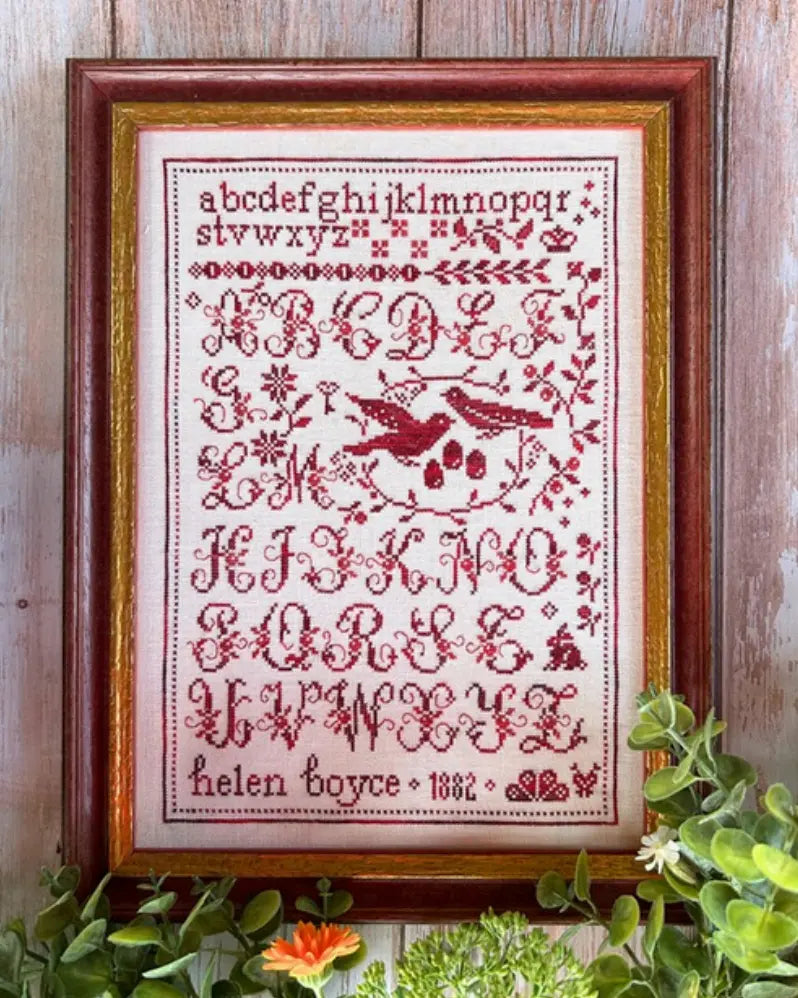 abcdefghijklmnopqr
stvwxyz
ABCDEF
G
LM
HIJKNO
PQRST
UVWXYZ
helen boyce 1882